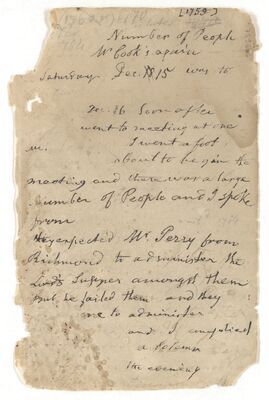 [1759]
Number of People
Mr Cook's again
Saturday. Dec. 15 was to
Dec. 16 Soon after
went to meeting at one
I went a foot
about to begin the
meeting and there was a large
number of People and I spoke
from
expected Mr. Perry from
Richmond to administer the
Lord's Supper amongst them
but he failed them and they
me to administer
and I complied
a Solemn
the evening